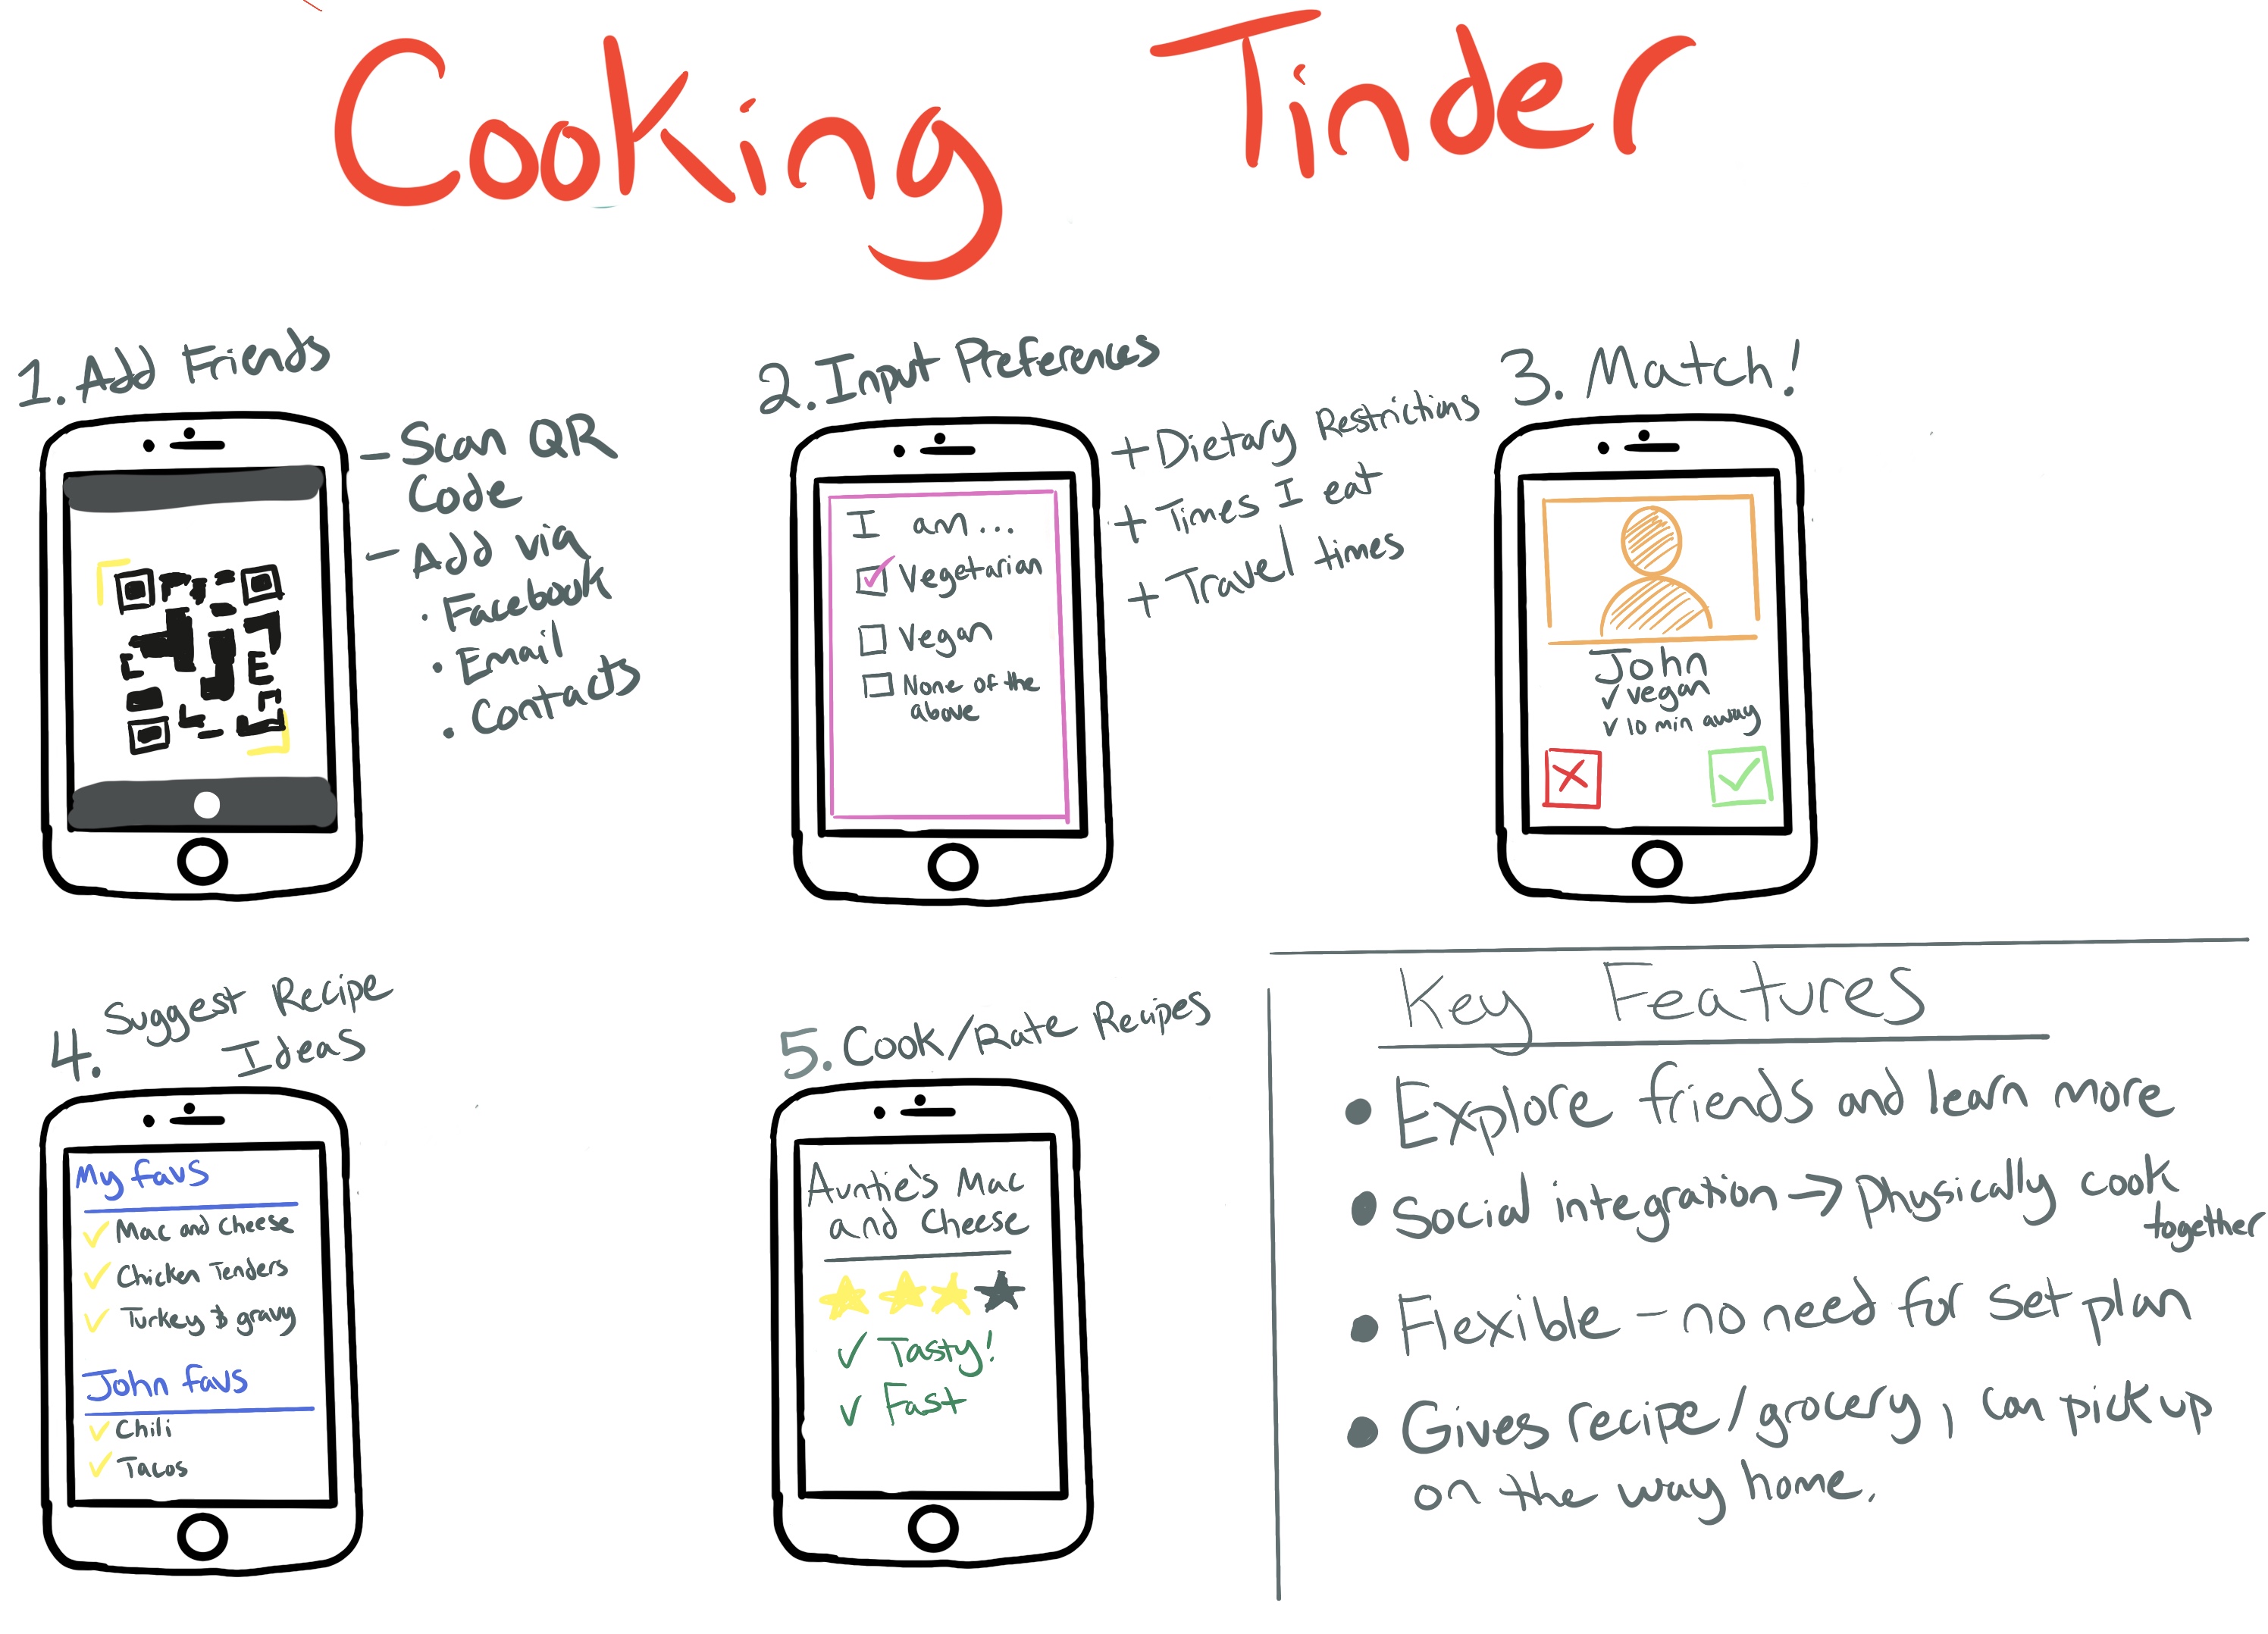 Cooking Tinder
1. Add Friends
- Scan QR
Code
- Add via
• Facebook
• Email
• Contacts
2. Input Preferences
I am...
Vegetarian
Vegan
None of the
above
+ Dietary Restrictions
+ Times I eat
+ Travel times
3. Match!
John
✓ vegan
✓ 10 min away
4. Suggest Recipe
Ideas
My favs
✓ Mac and Cheese
✓ Chicken Tenders
✓ Turkey & gravy
John favs
✓ Chili
✓ Tacos
5. Cook/Rate Recipes
Auntie's Mac
and Cheese
✓ Tasty!
✓ Fast
Key Features
• Explore friends and learn more
• Social integration → physically cook
together
• Flexible - no need for set plan
• Gives recipe/grocery, can pick up
on the way home.